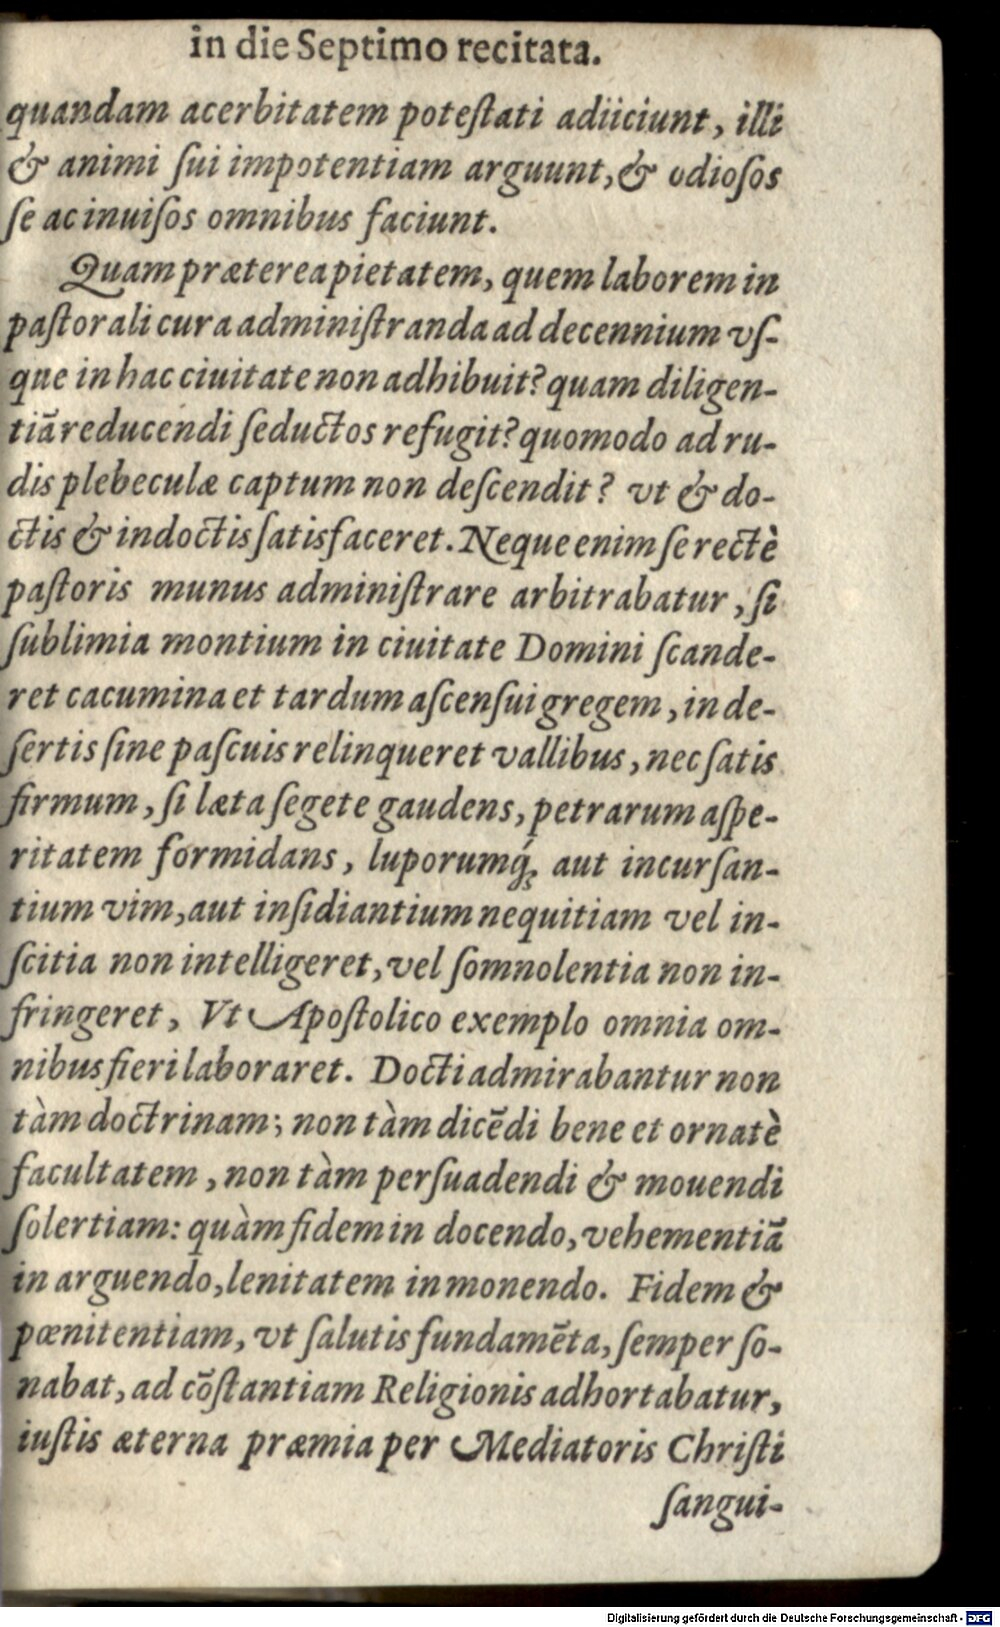 in die Septimo recitata.
quandam acerbitatem poteſtati adiiciunt, illi
& animi ſui impotentiam arguunt, & odioſos
ſe ac inuiſos omnibus faciunt.
Quam prætereapietatem, quem laborem in
paſtorali cura adminiſtranda ad decennium vſ-
que in hac ciuitate non adhibuit? quam diligen-
tiã reducendi ſeductos refugit? quomodo ad ru-
dis plebeculæ captum non deſcendit? vt & do-
ctis & indoctis ſatisfaceret. Neque enim ſe rectè
paſtoris munus adminiſtrare arbitrabatur, ſi
ſublimia montium in ciuitate Domini ſcande-
ret cacumina et tardum aſcenſui gregem, in de-
ſertis ſine paſcuis relinqueret vallibus, nec ſatis
firmum, ſi læta ſegete gaudens, petrarum aſpe-
ritatem formidans, luporumq́; aut incurſan-
tium vim, aut inſidiantium nequitiam vel in-
ſcitia non intelligeret, vel ſomnolentia non in-
fringeret, Vt Apoſtolico exemplo omnia om-
nibus fieri laboraret. Docti admirabantur non
tàm doctrinam; non tàm dicẽdi bene et ornatè
facultatem, non tàm perſuadendi & mouendi
ſolertiam: quàm fidem in docendo, vehementiã
in arguendo, lenitatem in monendo. Fidem &
pœnitentiam, vt ſalutis fundamẽta, ſemper ſo-
nabat, ad cõſtantiam Religionis adhortabatur,
iuſtis æterna præmia per Mediatoris Chriſti
ſangui-
Digitalisierung gefördert durch die Deutsche Forschungsgemeinschaft - DFG